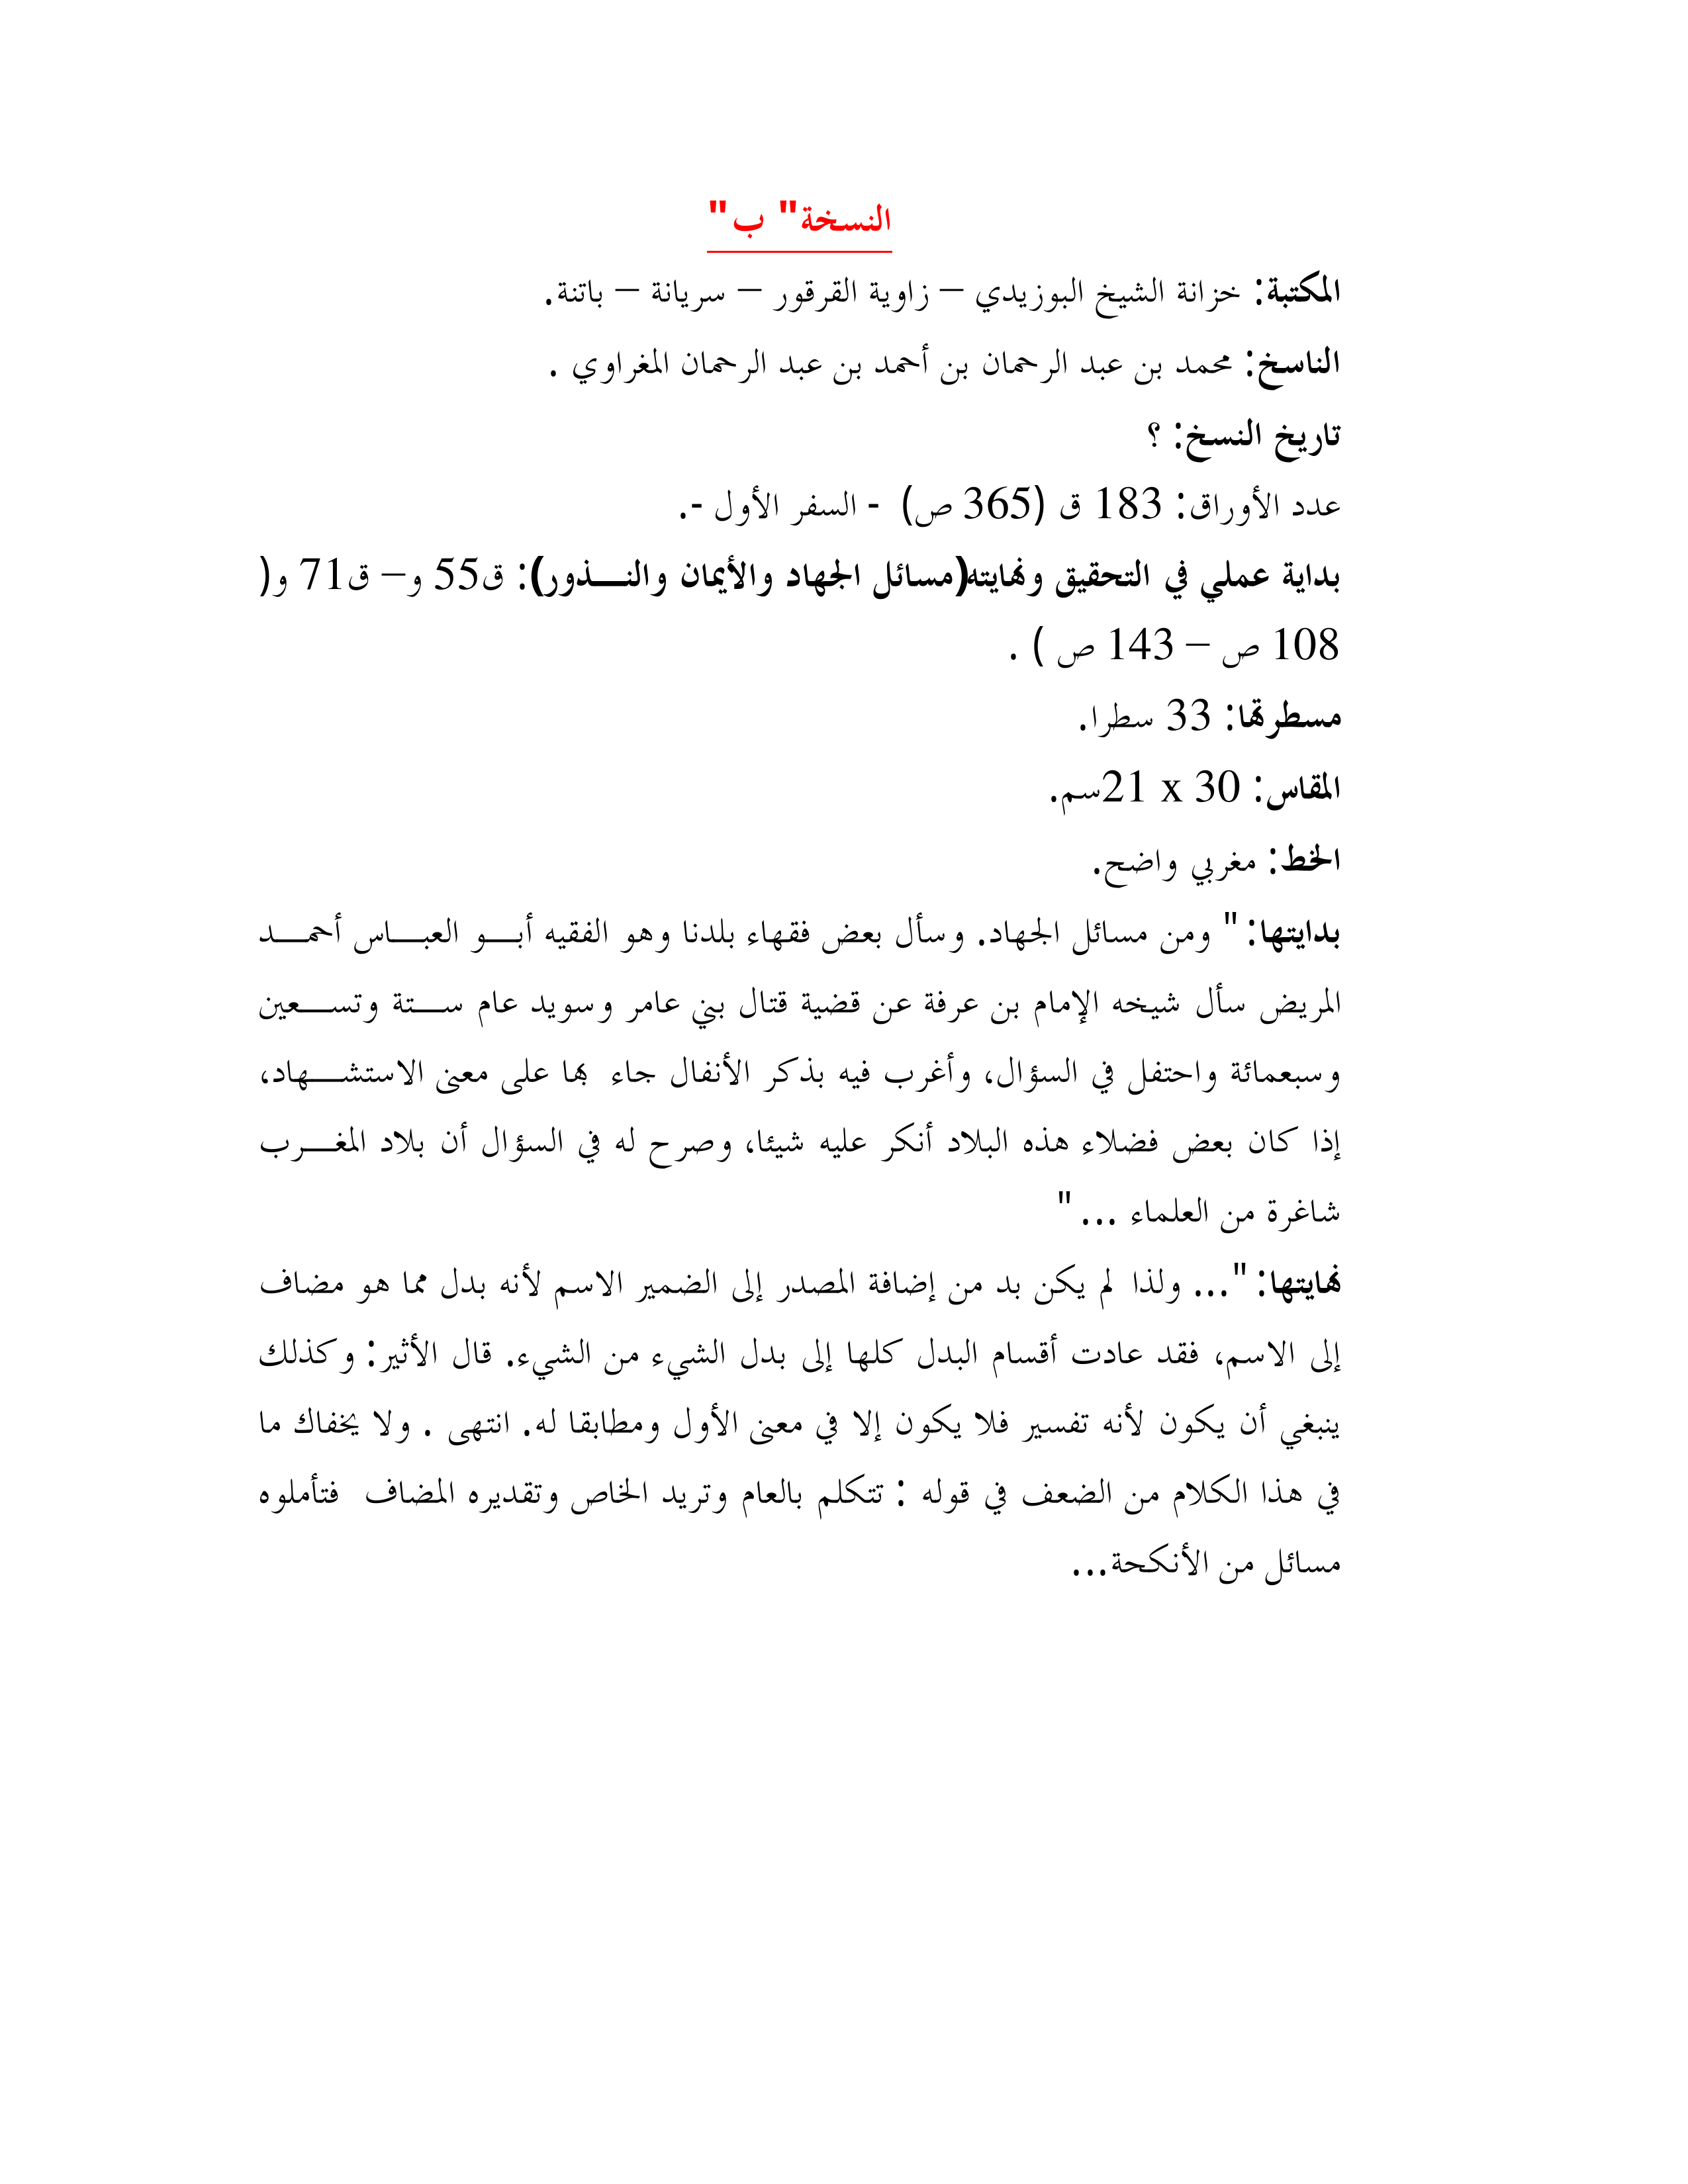 النسخة" ب"
المكتبة: خزانة الشيخ البوزيدي – زاوية القرقور – سريانة – باتنة.
الناسخ: محمد بن عبد الرحمان بن أحمد بن عبد الرحمان المغراوي .
تاريخ النسخ: ؟
عدد الأوراق: 183 ق (365 ص) - السفر الأول -.
بداية عملي في التحقيق ونهايته(مسائل الجهاد والأيمان والنـــذور): ق55 و– ق71 و(
108 ص – 143 ص ) .
مسطرتها: 33 سطرا.
المقاس: 30 x 21سم.
الخط: مغربي واضح.
بدايتها: " ومن مسائل الجهاد. وسأل بعض فقهاء بلدنا وهو الفقيه أبـــو العبـــاس أحمـــد
المريض سأل شيخه الإمام بن عرفة عن قضية قتال بني عامر وسويد عام ســـتة وتســـعين
وسبعمائة واحتفل في السؤال، وأغرب فيه بذكر الأنفال جاء بها على معنى الاستشـــهاد،
إذا كان بعض فضلاء هذه البلاد أنكر عليه شيئا، وصرح له في السؤال أن بلاد المغـــرب
شاغرة من العلماء ... "
نهايتها: "... ولذا لم يكن بد من إضافة المصدر إلى الضمير الاسم لأنه بدل مما هو مضاف
إلى الاسم، فقد عادت أقسام البدل كلها إلى بدل الشيء من الشيء. قال الأثير: وكذلك
ينبغي أن يكون لأنه تفسير فلا يكون إلا في معنى الأول ومطابقا له. انتهى . ولا يخفاك ما
في هذا الكلام من الضعف في قوله : تتكلم بالعام وتريد الخاص وتقديره المضاف فتأملوه
مسائل من الأنكحة...